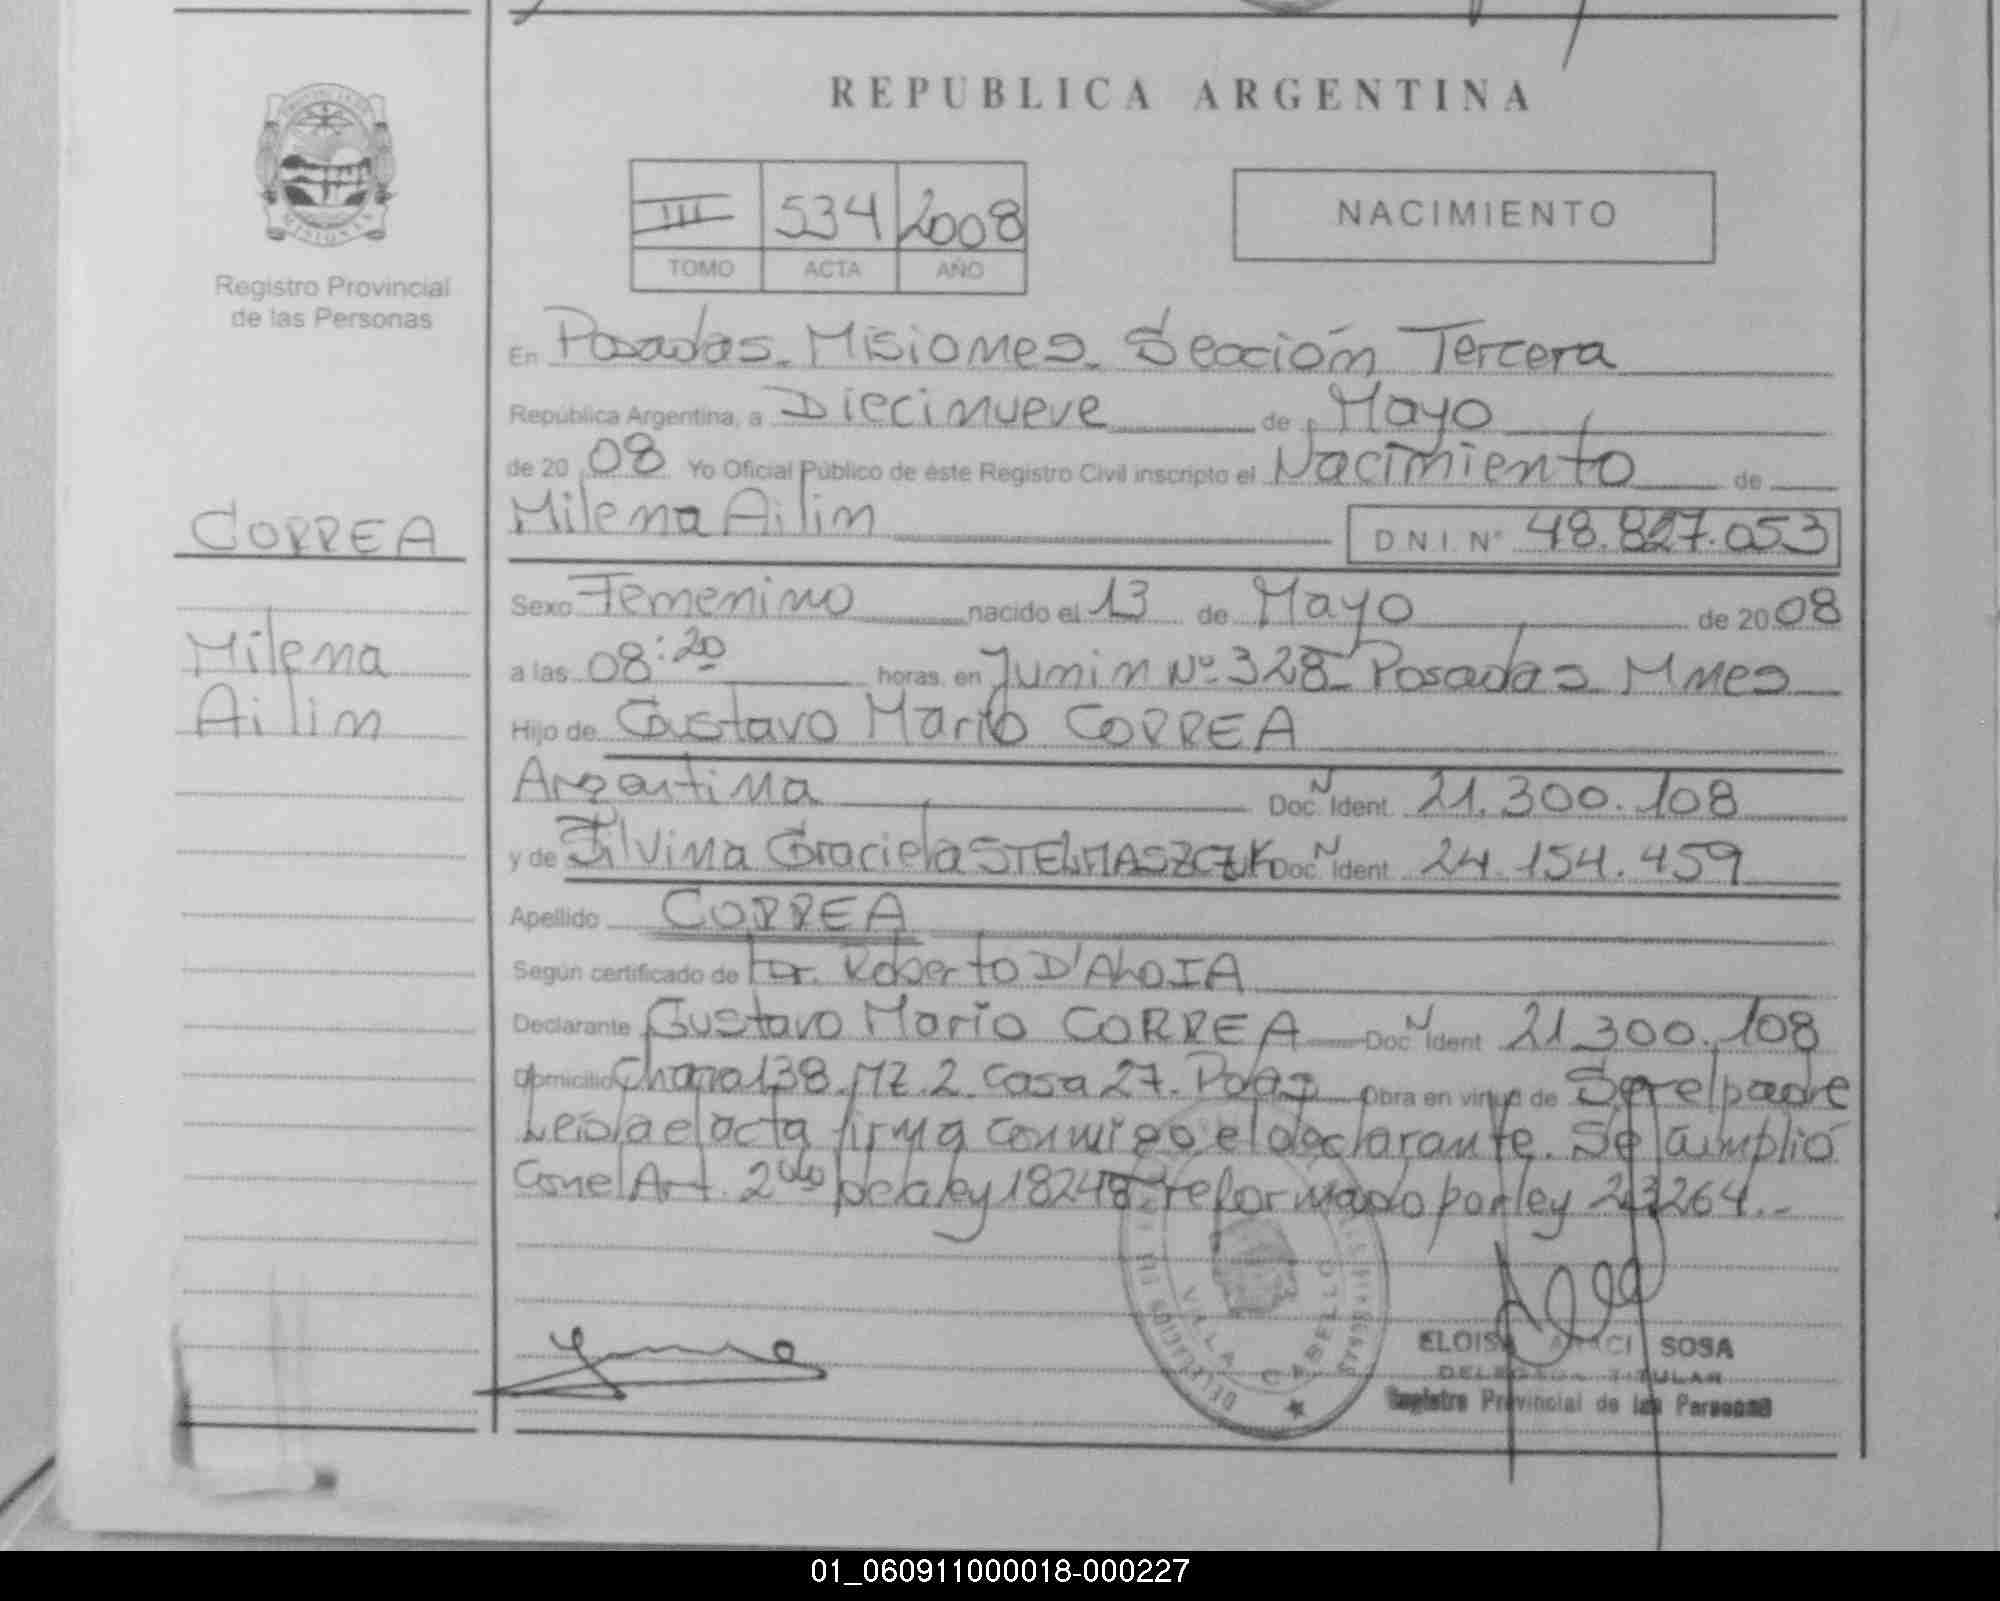 REPUBLICA ARGENTINA
III 534 2008
TOMO ACTA AÑO
NACIMIENTO
Registro Provincial
de las Personas
CORREA
Milena
Ailin
En Posadas. Misiones. Sección Tercera
República Argentina, a Diecinueve de Mayo
de 20 08 Yo Oficial Público de éste Registro Civil inscripto el Nacimiento de
Milena Ailin D.N.I. Nº 48.827.053
Sexo Femenino nacido el 13 de Mayo de 2008
a las 08:20 horas, en Junin Nº 328 Posadas Mnes
Hijo de Gustavo Mario CORREA
Argentina Doc. N Ident. 21.300.108
y de Silvina Graciela STELMASZCZUK Doc. N Ident. 24.154.459
Apellido CORREA
Según certificado de Dr. Roberto D'ALOIA
Declarante Gustavo Mario CORREA Doc. N Ident 21.300.108
Domicilio 138. MZ. 2. Casa 27. Obra en virtud de Ser el padre
Leida el acta firma conmigo el declarante. Se cumplió
Con el Art. 2do de la ley 18248 reformado por ley 23264.-
VILLA CABELLO
ELOISA ARACI SOSA
DELEGADA TITULAR
Registro Provincial de las Personas
01_060911000018-000227